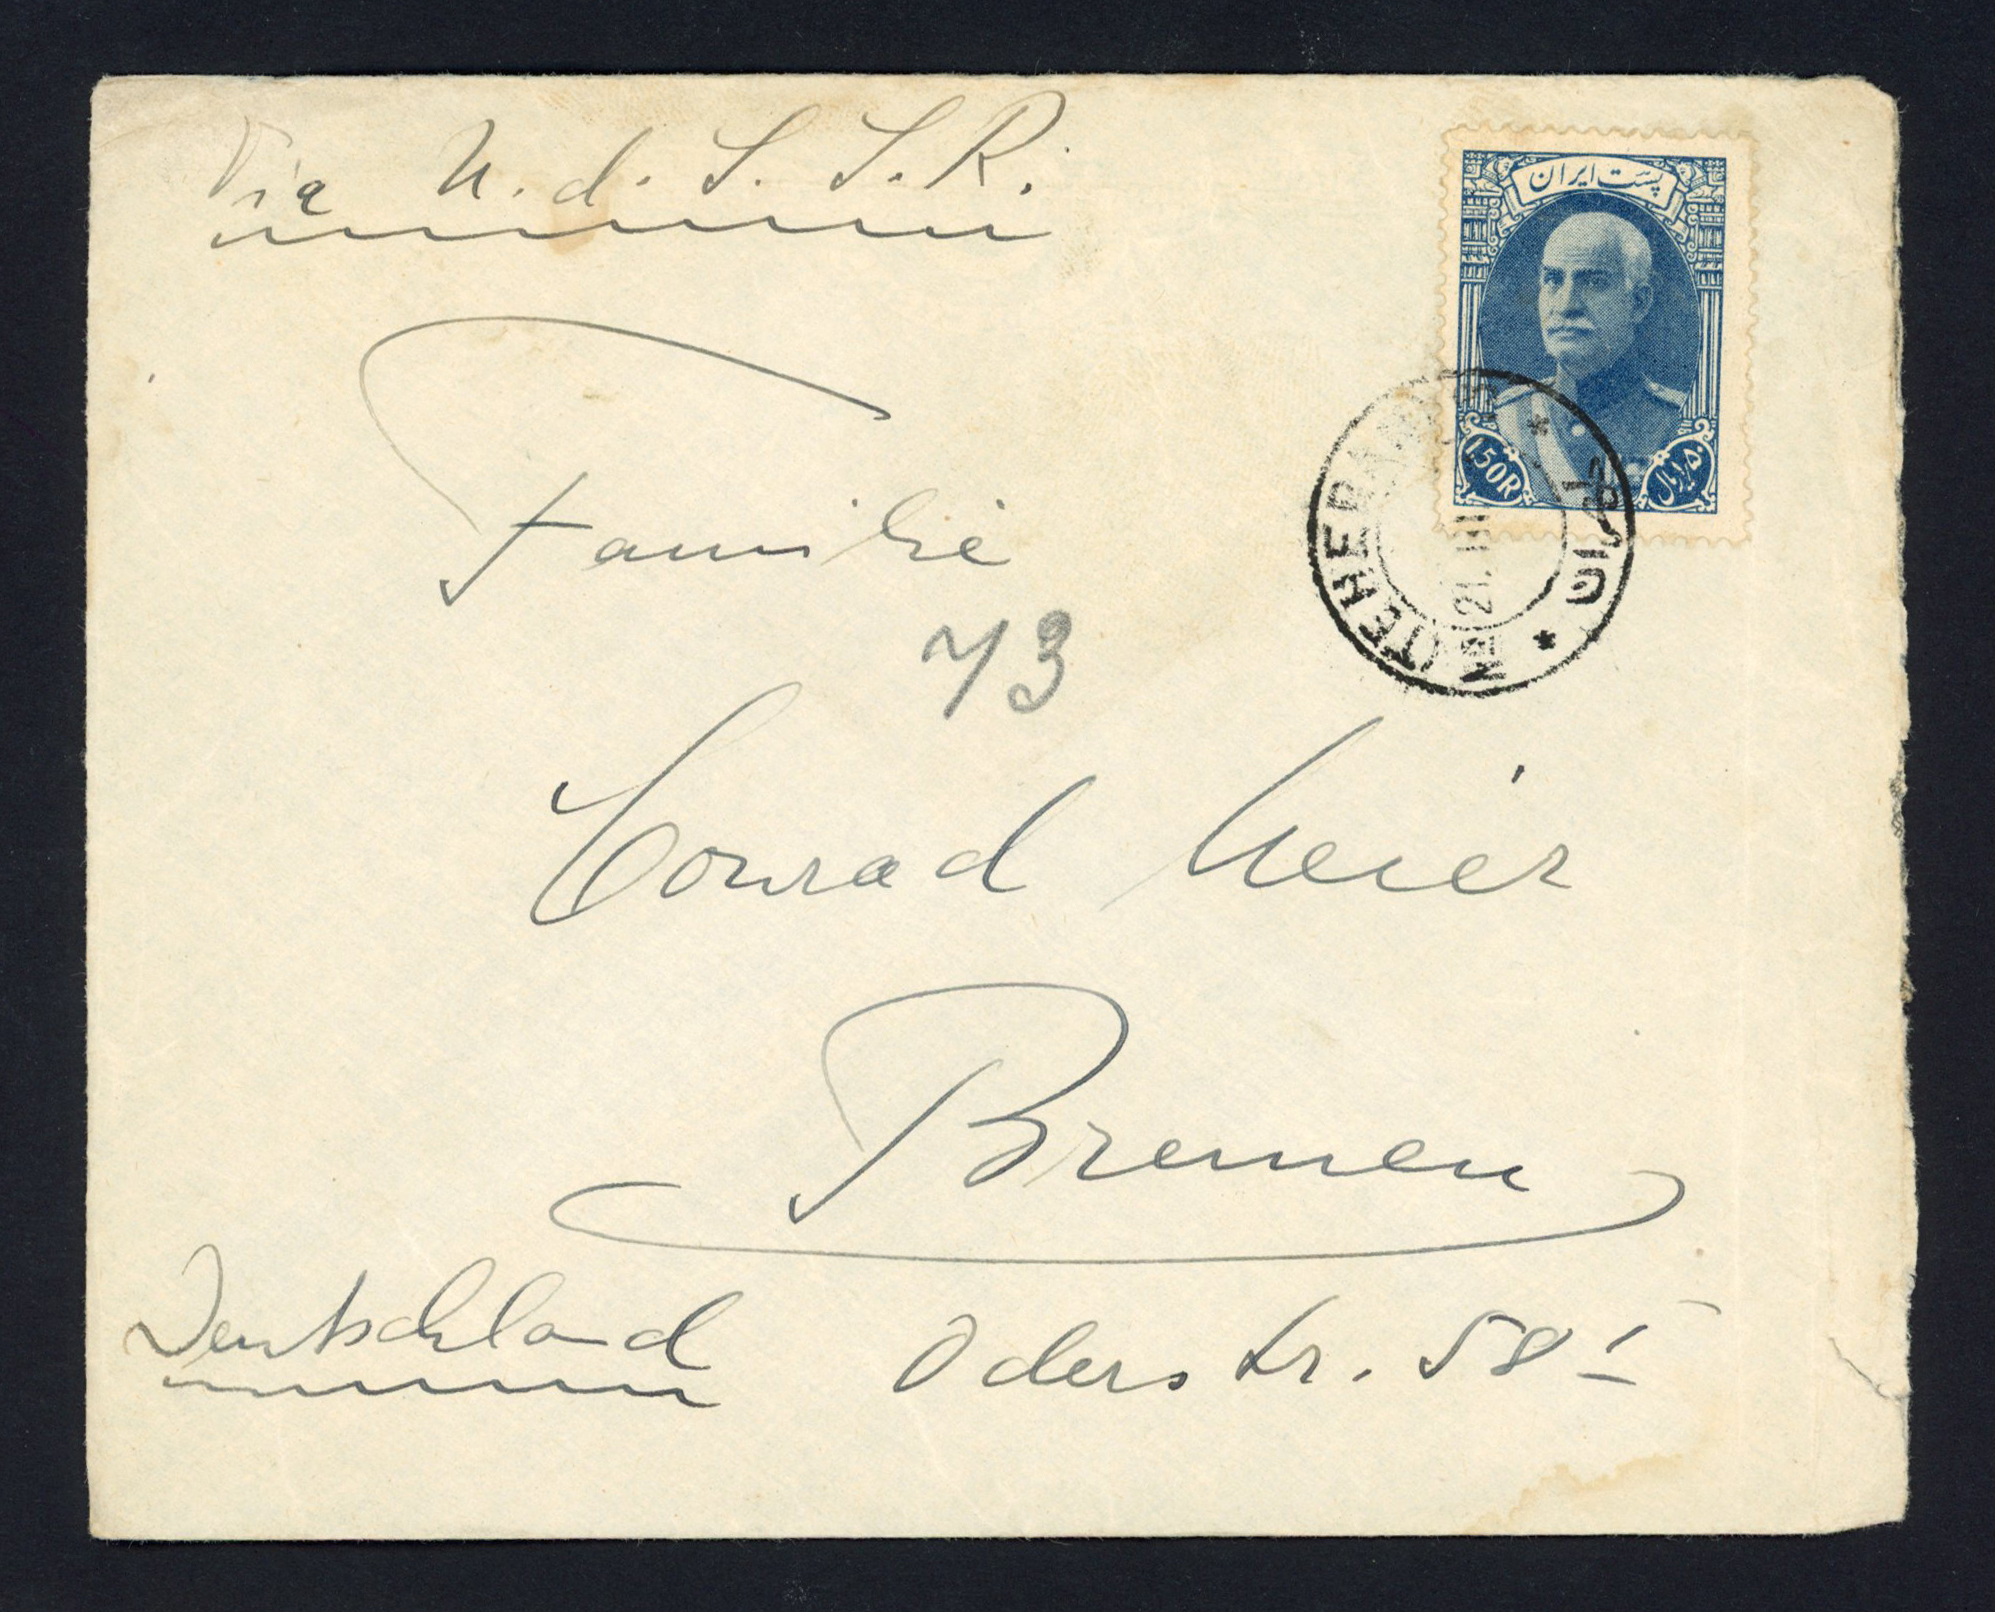 Via U. d. S. S. R.
پست ایران
1.50R
ریال
TEHERAN
طهران
21. III
Nº2
Familie
73
Conrad Meier
Bremen
Deutschland
Oderstr. 58 I